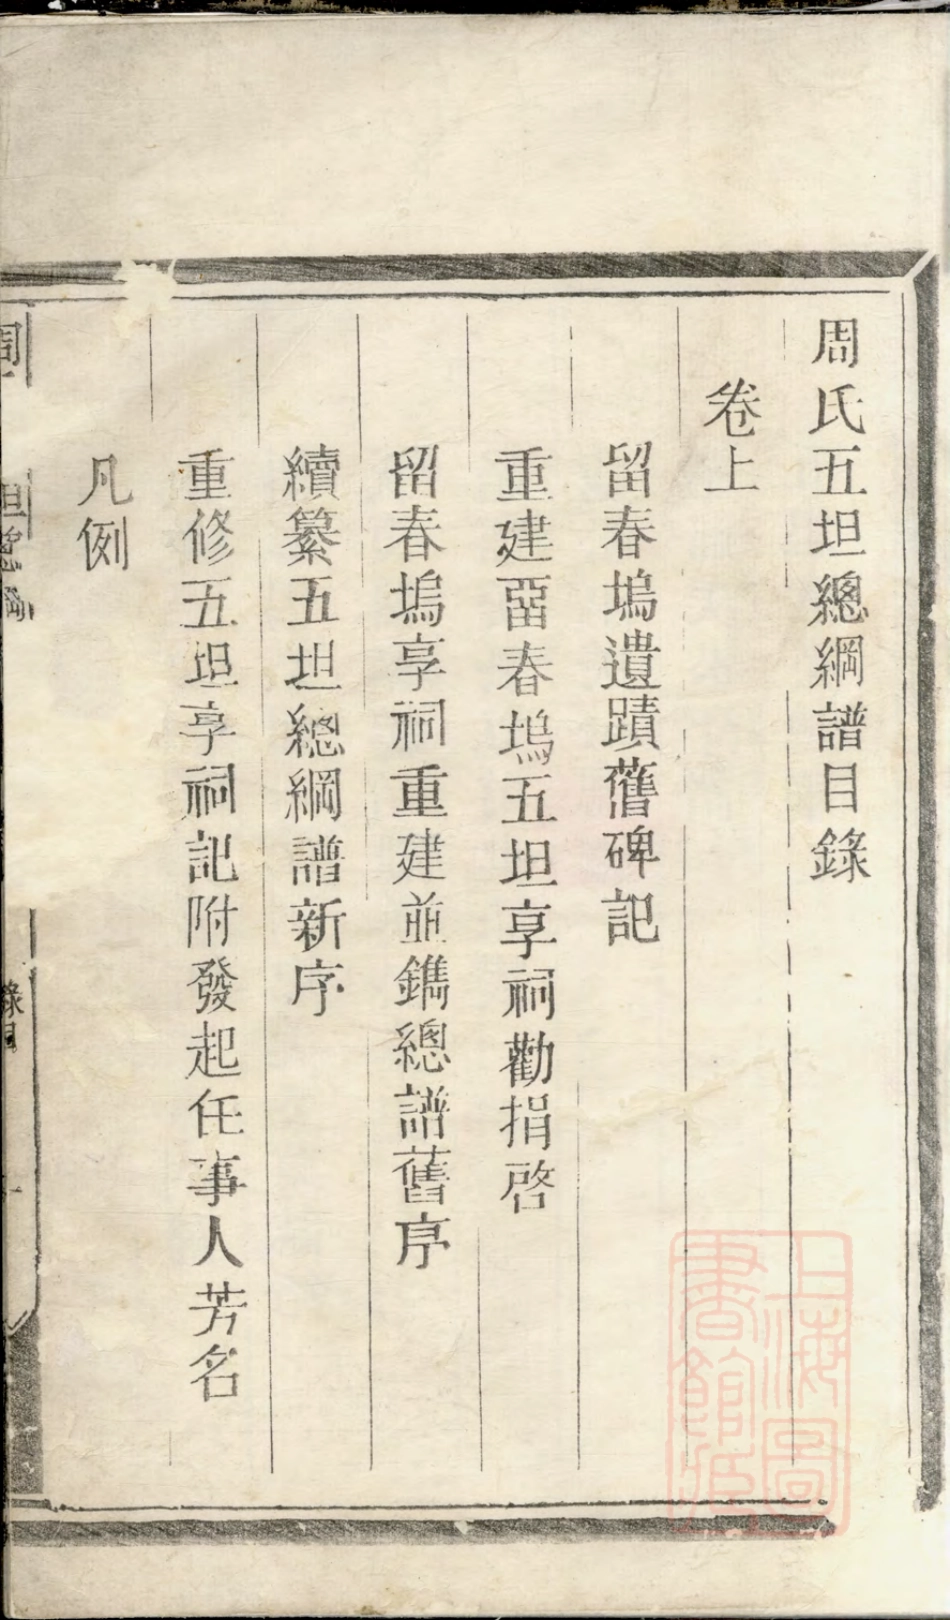 周氏五坦總綱譜目錄
卷上
留春塢遺蹟舊碑記
重建畱春塢五坦享祠勸捐啓
留春塢享祠重建並鐫總譜舊序
續纂五坦總綱譜新序
重修五坦享祠記附發起任事人芳名
凡例
上海圖書館藏